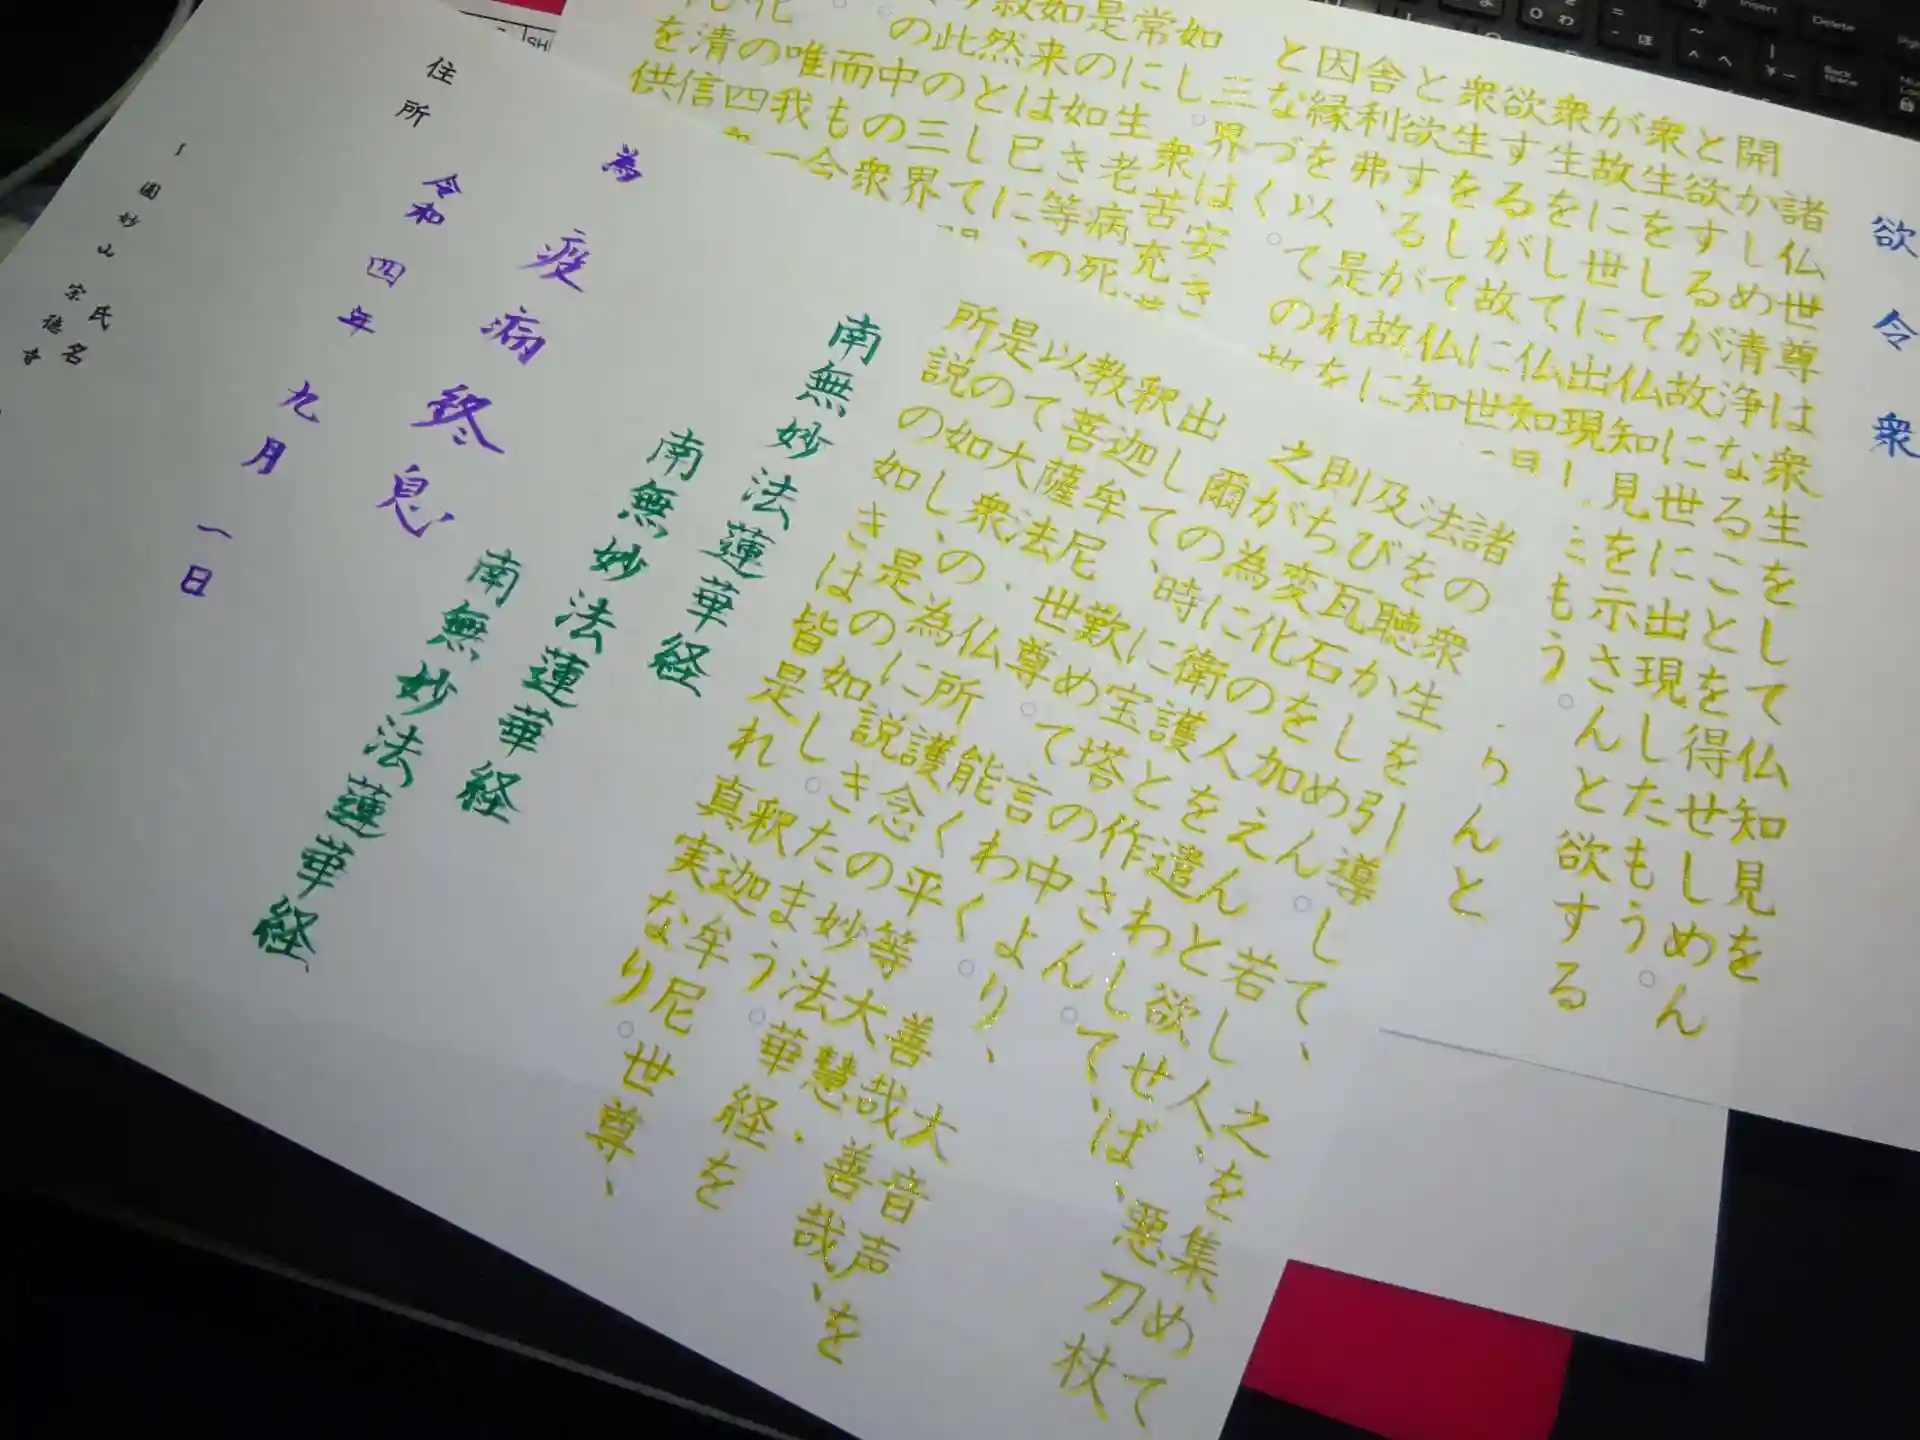 欲令衆
諸仏世尊は衆生をして仏知見を
開かしめ清浄なることを得せしめん
と欲するが故に世に出現したもう。
衆生に仏知見を示さんと欲する
が故に世に
もう。
衆生をして仏知見
欲するが故に
衆生をして仏知
と欲するが故に
舎利弗、是れを
因縁を以ての故
となづく。
三界は安き
如し。衆苦充
常に生老病死
是の如き等の
如来は已に
然として
此の三界
の中の衆
而も今
唯我一
の四
清信
を供
らんと
諸の衆生を引導して、之を集めて
法を聴かしめん。若し人、悪刀杖
及び瓦石を加えんと欲せば、
則ち変化の人を遣わして、
之が為に衛護と作さしん。
爾の時に宝塔の中より、大音声を
出して歎めて言わく。善哉善哉、
釈迦牟尼世尊、能く平等大慧・
教菩薩法・仏所護念の妙法華経を
以て大衆の為に説きたまう。
是の如し、是の如し。釈迦牟尼世尊、
所説の如きは皆是れ真実なり。
南無妙法蓮華経
南無妙法蓮華経
南無妙法蓮華経
為 疫病終息
令和四年九月一日
住所
氏名
圓妙山宗徳寺